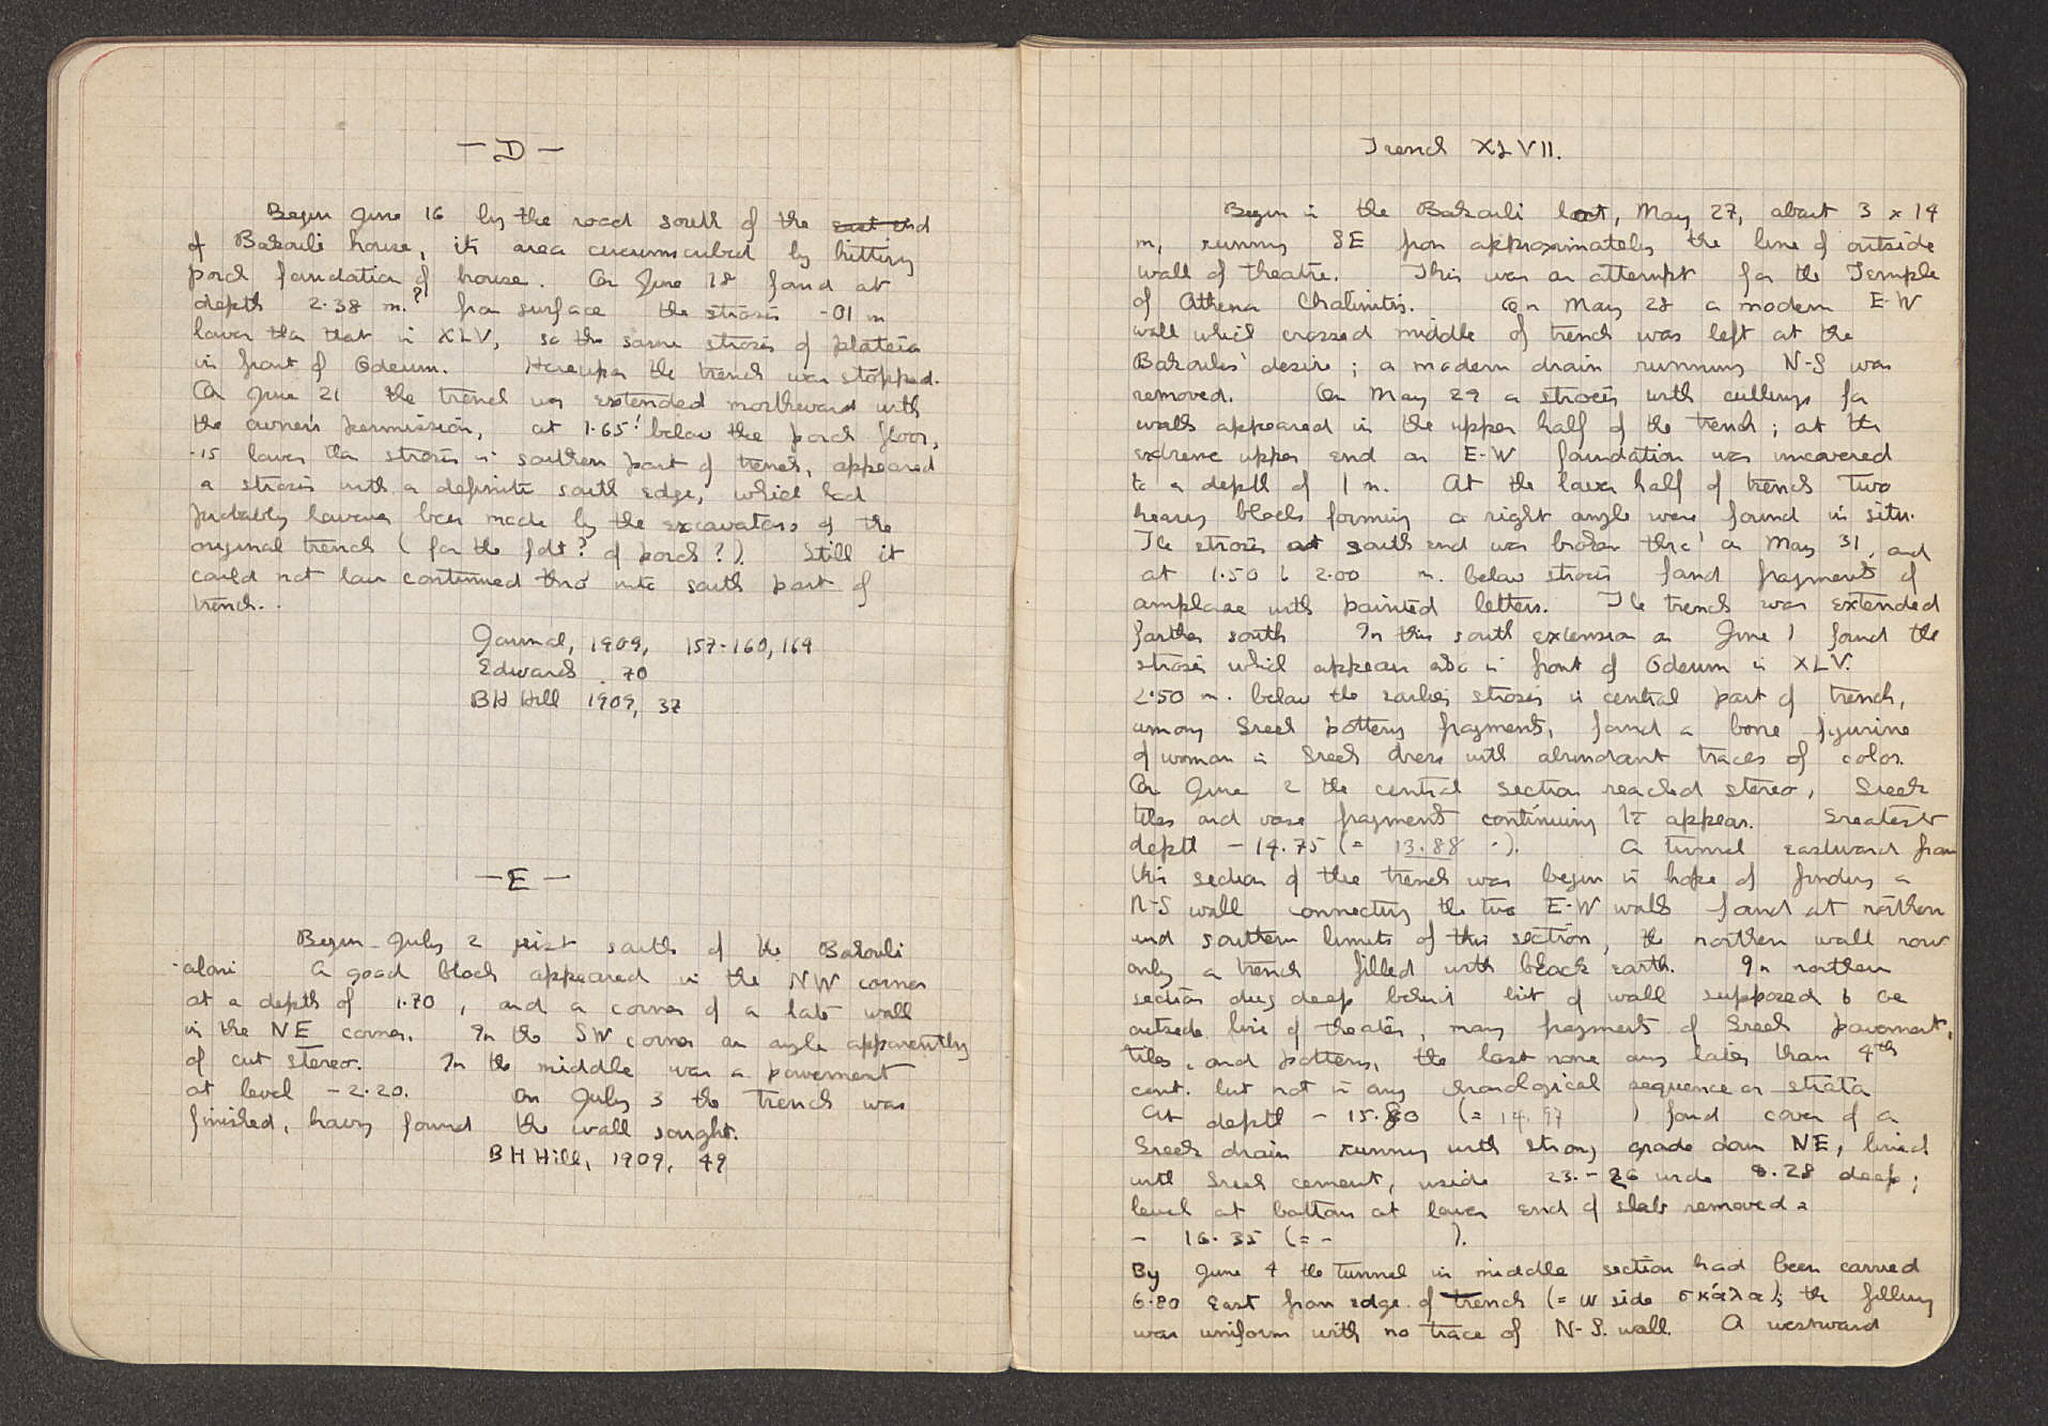 — D —
Begun June 16 by the road south of the east end
of Bakouli house, its area circumscribed by hitting
porch foundation of house. On June 18 found at
depth 2.38 m.? from surface the strosis -.01 m
lower than that in XLV, so the same strosis of plateia
in front of Odeum. Hereupon the trench was stopped.
On June 21 the trench was extended northward with
the owner's permission, at 1.65 below the porch floor,
.15 lower than strosis in southern part of trench, appeared
a strosis with a definite south edge, which had
probably however been made by the excavators of the
original trench (for the fdt? of porch?). Still it
could not have continued thro' into south part of
trench.
Journal, 1909, 157-160, 169
Edwards . 70
BH Hill 1909, 37
— E —
Begun July 2 just south of the Bakouli
aloni A good block appeared in the NW corner
at a depth of 1.70, and a corner of a late wall
in the NE corner. In the SW corner an angle apparently
of cut stereo. In the middle was a pavement
at level - 2.20. On July 3 the trench was
finished, having found the wall sought.
BH Hill, 1909, 49
Trench XLVII.
Begun in the Bakouli lot, May 27, about 3 x 14
m, running SE from approximately the line of outside
wall of theatre. This was an attempt for the Temple
of Athena Chalinitis. On May 28 a modern E-W
wall which crossed middle of trench was left at the
Bakoulis' desire; a modern drain running N-S was
removed. On May 29 a strosis with cuttings for
walls appeared in the upper half of the trench; at the
extreme upper end an E-W foundation was uncovered
to a depth of 1 m. At the lower half of trench two
heavy blocks forming a right angle were found in situ.
The strosis at south end was broken thro' on May 31, and
at 1.50 to 2.00 m. below strosis found fragments of
amphorae with painted letters. The trench was extended
farther south In this south extension on June 1 found the
strosis which appears also in front of Odeum in XLV.
2.50 m. below the earlier strosis in central part of trench,
among Greek pottery fragments, found a bone figurine
of woman in Greek dress with abundant traces of color.
On June 2 the central section reached stereo, Greek
tiles and vase fragments continuing to appear. Greatest
depth - 14.75 (= 13.88 -). A tunnel eastward from
this section of the trench was begun in hope of finding a
N-S wall connecting the two E-W walls found at northern
and southern limits of this section, the northern wall now
only a trench filled with black earth. In northern
section dug deep behind bit of wall supposed to be
outside line of theatre, many fragments of Greek pavement,
tiles, and pottery, the last none any later than 4th
cent. but not in any chronological sequence or strata
At depth - 15.80 (= 14.97 ) found cover of a
Greek drain running with strong grade down NE, lined
with Greek cement, inside 23.-26 wide 0.28 deep;
level at bottom at lower end of slab removed =
- 16.35 (= - ).
By June 4 the tunnel in middle section had been carried
6.80 East from edge of trench (= W side σκάλα); the filling
was uniform with no trace of N-S. wall. A westward